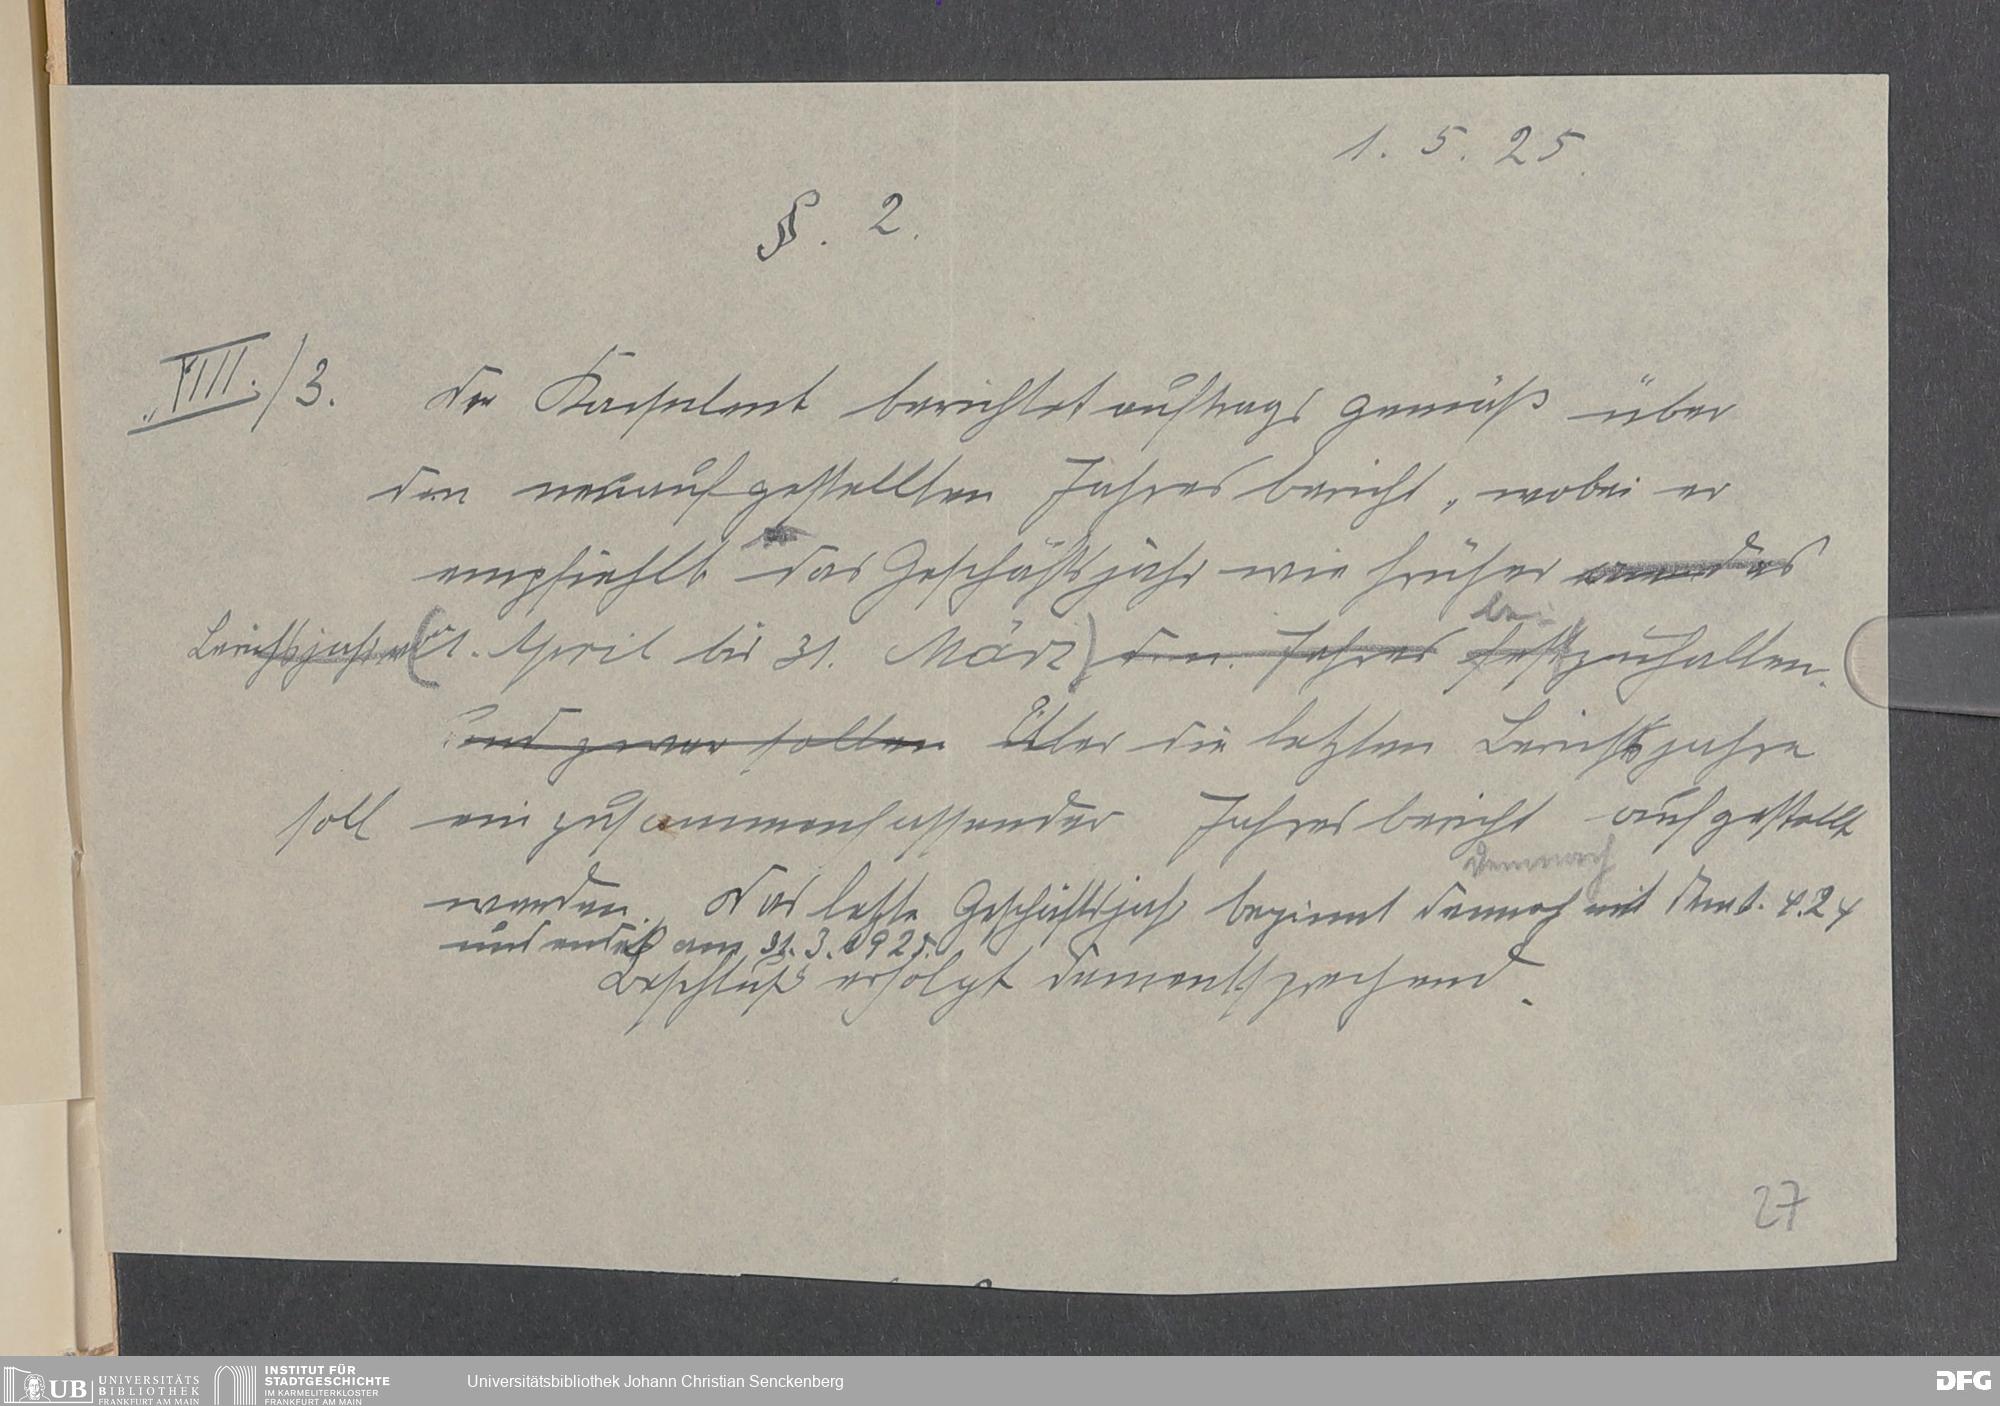 1. 5. 25.
§. 2.
VIII./3. Der Konsulent berichtet auftrags gemäß über
den neuaufgestellten Jahresbericht, wobei er
empfiehlt das Geschäftsjahr wie früher
Berichtsjahr (1. April bis 31. März) den. Jahres festzuhalten.
be
Und zwar sollen Über die letzten Berichtsjahre
soll ein zusammenfassender Jahresbericht aufgestellt
demnach
werden. Das letzte Geschäftsjahr beginnt demnach mit dem 1. 4. 24
und endet am 31. 3. 1925.
Beschluß erfolgt dementsprechend.
27
UB UNIVERSITÄTS BIBLIOTHEK FRANKFURT AM MAIN
INSTITUT FÜR STADTGESCHICHTE IM KARMELITERKLOSTER FRANKFURT AM MAIN
Universitätsbibliothek Johann Christian Senckenberg
DFG